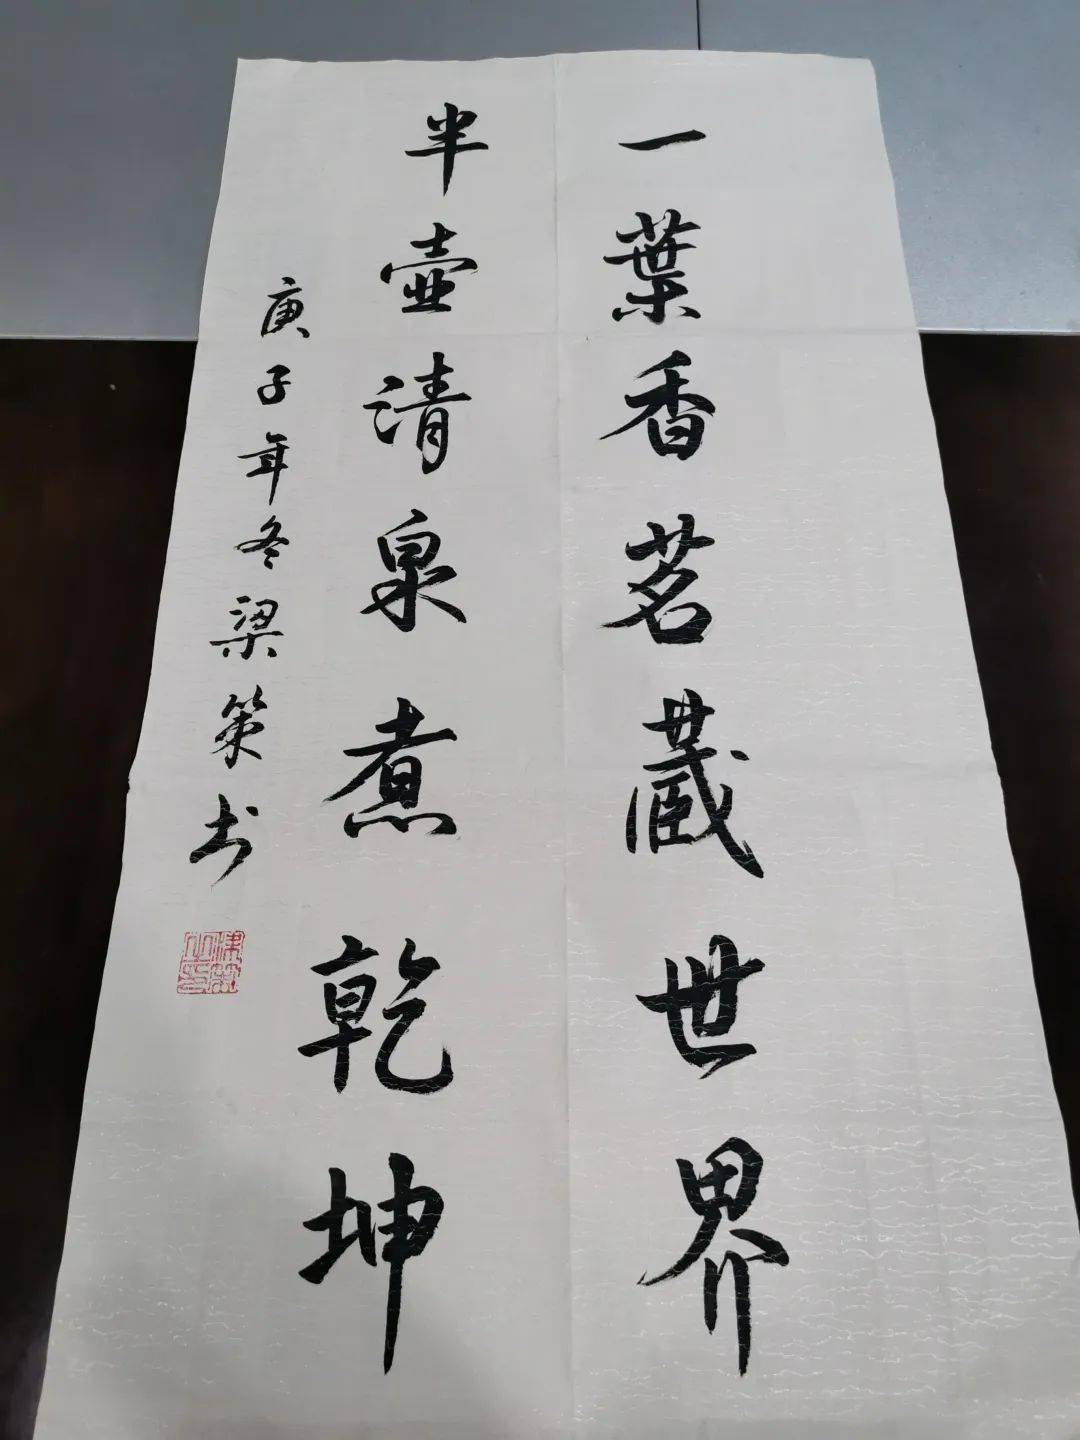 一葉香茗藏世界
半壺清泉煮乾坤
庚子年冬梁策书